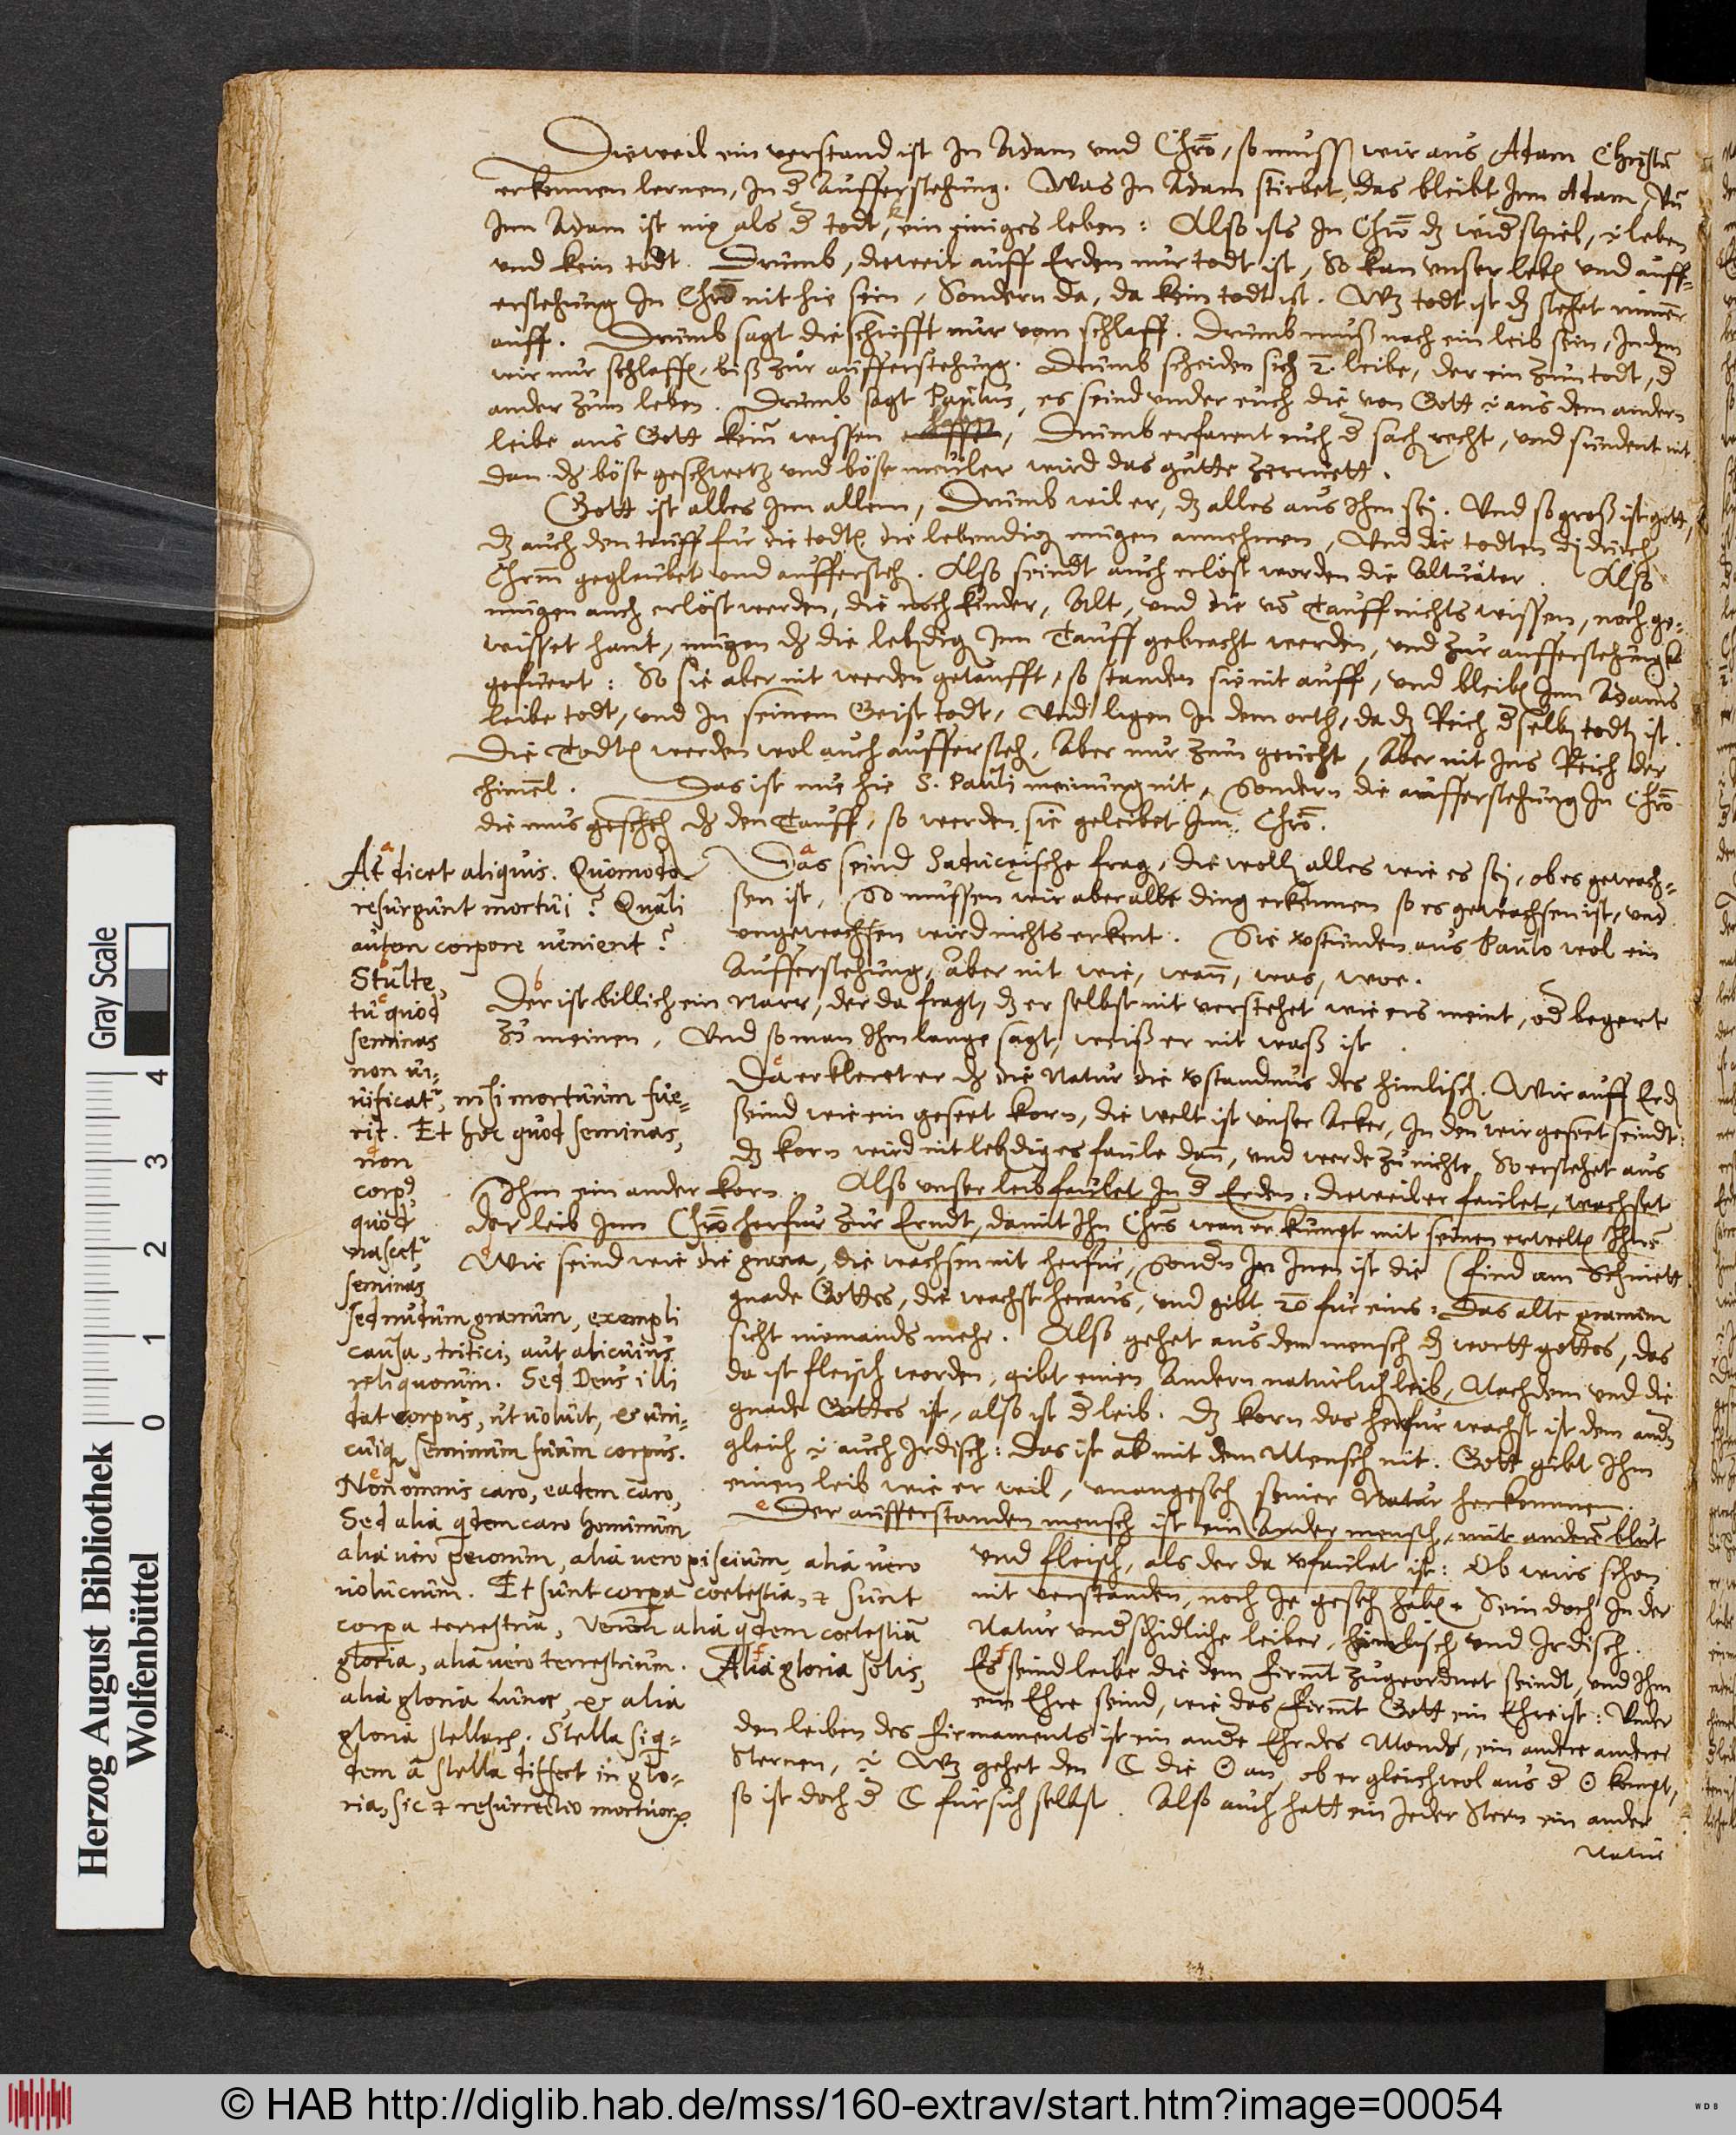 Dieweil ein verstand ist In Adam vnd Chrō, so mussen wir aus Adam Christū
erkennen lernen, In d Aufferstehung. Was In Adam stirbet, das bleibt Inn Adam, Vn
Inn Adam ist nix als d todt, kein einiges leben: Also ists In Chrō dz widspiel, i leben
vnd kein todt. Drumb, dieweil auff Erden nur todt ist, So kan vnser leben vnd auff-
erstehung In Chrō nit hie sein, Sondern da, da kein todt ist. Wz todt ist dz stehet nimer
auff. Drumb sagt die schrifft nur vom schlaff. Drumb muß noch ein leib sein, Indem
wir nur schlaffen, biß zur aufferstehung. Drumb scheiden sich 2. leibe, der ein zum todt, d
ander zum leben. Drumb sagt Paulus, es seind vnder euch die von Gott i aus dem andern
leibe aus Gott kein wissen haben, Drumb erfarent euch d sach recht, vnd sundent nit
dan dz böse geschwetz vnd böse meuler wird das gutte zerruett.
Gott ist alles Inn allem, Drumb wil er, dz alles aus Ihm sej. Und so groß ist gott,
dz auch den tauff fur die todten die lebendigen mugen annehmen, Vnd die todten dz durch
Chrm geglaubet vnd aufferstehn. Also seindt auch erlöst worden die Altuäter. Also
mugen auch erlöst werden, die noch kinder, Alt, vnd die vō Tauff nichts wissen, noch ge-
wisset hant, mugen dz die lebendigen Inn Tauff gebracht werden, vnd zur aufferstehung
gefuert: So sie aber nit werden getaufft, so standen sie nit auff, vnd bleiben Inn Adams
leibe todt, vnd In seinem Geist todt, Vnd ligen In dem orth, da dz Reich dselben todten ist.
Die Todten werden wol auch aufferstehn, Aber nur zum gericht, Aber nit Ins Reich der
himel. Das ist nuhn hie S. Pauli meinung nit, Sondern die aufferstehung In Chrō
die mus geschehen dz den Tauff, so werden sie geleibet Inn Chrō.
a At dicet aliquis. Quomodo
resurgunt mortui? Quali
autem corpore uenient?
b Stulte,
c tu quod
seminas
non ui-
uificatr, nisi mortuum fue-
rit. Et hoc quod seminas,
d non
corpus
quod
nascetr
seminas
sed nudum granum, exempli
causa, tritici, aut alicuius
reliquorum. Sed Deus illi
dat corpus, ut uoluit, & uni-
cuiq seminum suum corpus.
e Non omnis caro, eadem caro,
Sed alia qdem caro hominum
alia uero pecorum, alia uero piscium, alia uero
uolucrum. Et sunt corpa coelestia, et sunt
corpa terrestria, Verum alia qdem coelestiū
gloria, alia uero terrestrium. f Alia gloria solis,
alia gloria Lunae, & alia
gloria stellarum. Stella siq-
dem à stella differt in glo-
ria, sic et resurrectio mortuorum.
a Das seind Saduceische frag, die wollen alles wie es sej, ob es gewach-
sen ist, So mussen wir aber alle ding erkennen so es gewachsen ist, vnd
ungewachsen wird nichts erkent. Sie vstunden aus Paulo wol ein
Aufferstehung, aber nit wie, wann, was, woe.
b Der ist billich ein Narr, der da fragt, dz er selbst nit verstehet wie ers meint, od begert
zu meinen, Vnd so man Ihm lange sagt, weiß er nit waß ist.
c Da erkleret er dz die Natur die vstandnus des himlischen. Wir auff Erden
seind wie ein geseet korn, die welt ist vnser Acker, In den wir geseet seindt:
dz korn wird nit lebendig es faule dann, vnd werde zu nichte, So erstehet aus
Ihm ein ander korn. Also vnser leib faulet In d Erden, dieweil er faulet, wachset
der leib Inn Chrō herfur zur Erndt, damit Ihn Chrs wan er kumpt mit seinen erwelten Ihn
d Wir seind wie die grana, die wachsen nit herfur, Sondn In Inen ist die (find am Schnett
gnade Gottes, die wachst heraus, vnd gibt 20 fur eins: Das alte granum
sicht niemands mehr. Also gehet aus dem mensch dz wortt gottes, das
da ist fleisch worden, gibt einen Andern naturlichen leib, Nachdem vnd die
gnade Gottes ist, also ist d leib. Dz korn das herfur wachst ist dem andn
gleich i auch Irdisch: Das ist ab mit dem Mensch nit. Gott gibt Ihm
einen leib wie er wil, vnangesehen seiner Natur herkommen.
e Der aufferstanden mensch ist ein Ander mensch, mit anderē blut
vnd fleisch, als der da vfaulet ist: Ob wirs schon
nit verstanden, noch Je gesehen haben. Sein doch In der
Natur vndschidliche leiber, himlisch vnd Irdisch.
f Es seind leibe die dem firmt zugeordnet seindt, vnd Ihm
ein Ehre seind, wie das Firmt Gott ein Ehre ist: Vnder
den leiben des firmaments ist ein ande Ehr des Monds, ein andere anderer
Sternen, i Wz gehet den ☾ die ☉ an, ob er gleichwol aus d ☉ kompt,
so ist doch d ☾ fur sich selbst. Also auch hatt ein Jeder Stern ein ander
Natur
Herzog August Bibliothek
Wolfenbüttel
Gray Scale
0 1 2 3 4
© HAB http://diglib.hab.de/mss/160-extrav/start.htm?image=00054
WDB